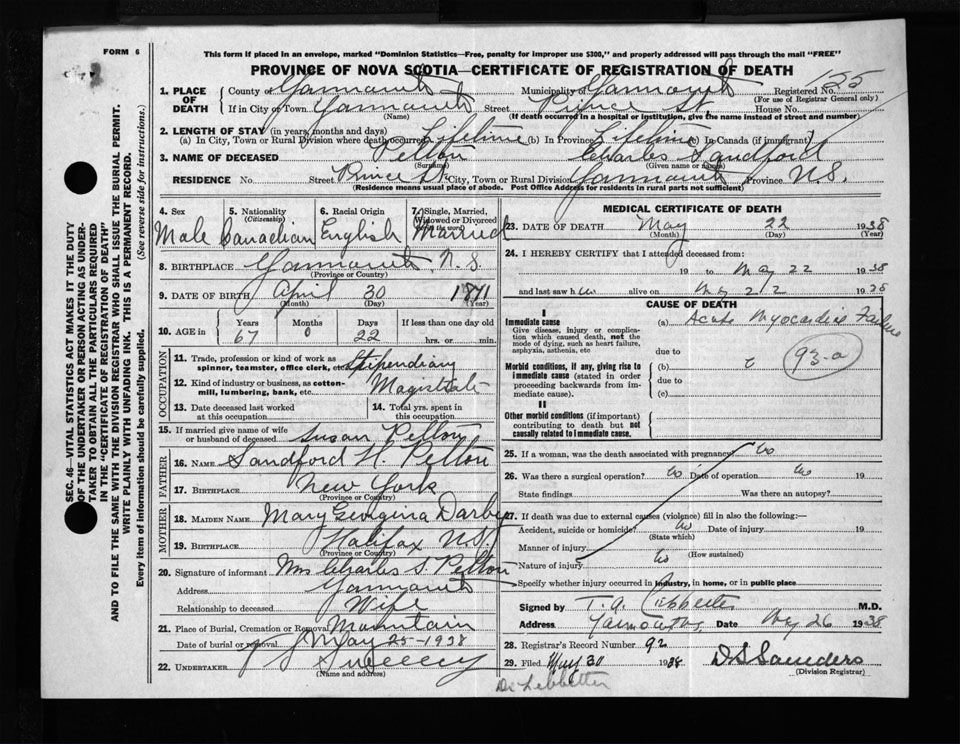 FORM 6
This form if placed in an envelope, marked "Dominion Statistics—Free, penalty for improper use $300," and properly addressed will pass through the mail "FREE"
PROVINCE OF NOVA SCOTIA—CERTIFICATE OF REGISTRATION OF DEATH
1. PLACE OF DEATH County of Yarmouth Municipality of Yarmouth Registered No. 155
(For use of Registrar General only)
If in City or Town Yarmouth Street Prince St. House No.
(Name) (If death occurred in a hospital or institution, give the name instead of street and number)
2. LENGTH OF STAY (in years, months and days)
(a) In City, Town or Rural Division where death occurred Lifetime (b) In Province Lifetime (c) In Canada (if immigrant)
3. NAME OF DECEASED Pelton Charles Sandford
(Surname) (Given name or names)
RESIDENCE No. Street Prince St. City, Town or Rural Division Yarmouth Province N.S.
(Residence means usual place of abode. Post Office Address for residents in rural parts not sufficient)
SEC. 46—VITAL STATISTICS ACT MAKES IT THE DUTY
OF THE UNDERTAKER OR PERSON ACTING AS UNDER-
TAKER TO OBTAIN ALL THE PARTICULARS REQUIRED
IN THE "CERTIFICATE OF REGISTRATION OF DEATH"
AND TO FILE THE SAME WITH THE DIVISION REGISTRAR WHO SHALL ISSUE THE BURIAL PERMIT.
WRITE PLAINLY WITH UNFADING INK. THIS IS A PERMANENT RECORD.
Every item of information should be carefully supplied. (See reverse side for instructions.)
4. Sex Male
5. Nationality (Citizenship) Canadian
6. Racial Origin English
7. Single, Married, Widowed or Divorced Married
8. BIRTHPLACE Yarmouth, N.S.
(Province or Country)
9. DATE OF BIRTH April 30 1871
(Month) (Day) (Year)
10. AGE in Years 67 Months 0 Days 22 If less than one day hrs. or min.
OCCUPATION
11. Trade, profession or kind of work as spinner, teamster, office clerk, etc. Stipendiary
12. Kind of industry or business, as cotton-mill, lumbering, bank, etc. Magistrate
13. Date deceased last worked at this occupation
14. Total yrs. spent in this occupation
15. If married give name of wife or husband of deceased Susan Pelton
FATHER
16. NAME Sandford H. Pelton
17. BIRTHPLACE New York
(Province or Country)
MOTHER
18. MAIDEN NAME Mary Georgina Darby
19. BIRTHPLACE Halifax N.S.
(Province or Country)
20. Signature of informant Mrs Charles S. Pelton
Address Yarmouth
Relationship to deceased Wife
21. Place of Burial, Cremation or Removal Mountain
Date of burial or removal May 25-1938
22. UNDERTAKER Sweeny
(Name and address)
MEDICAL CERTIFICATE OF DEATH
23. DATE OF DEATH May 22 1938
(Month) (Day) (Year)
24. I HEREBY CERTIFY that I attended deceased from:
19 to May 22 1938
and last saw him alive on May 22 1938
CAUSE OF DEATH
I
Immediate cause (a) Acute Myocardial Failure
Give disease, injury or complication which caused death, not the mode of dying, such as heart failure, asphyxia, asthenia, etc
due to
93-a
Morbid conditions, if any, giving rise to immediate cause (stated in order proceeding backwards from immediate cause).
(b)
due to
(c)
II
Other morbid conditions (if important) contributing to death but not causally related to immediate cause.
25. If a woman, was the death associated with pregnancy? No
26. Was there a surgical operation? No Date of operation No 19
State findings Was there an autopsy?
27. If death was due to external causes (violence) fill in also the following:—
Accident, suicide or homicide? No Date of injury 19
(State which)
Manner of injury
(How sustained)
Nature of injury No
Specify whether injury occurred in industry, in home, or in public place
Signed by T. A. Lebbetter M.D.
Address Yarmouth Date May 26 1938
28. Registrar's Record Number 92
29. Filed May 30 1938 D.S. Saunders
(Division Registrar)
Dr. Lebbetter